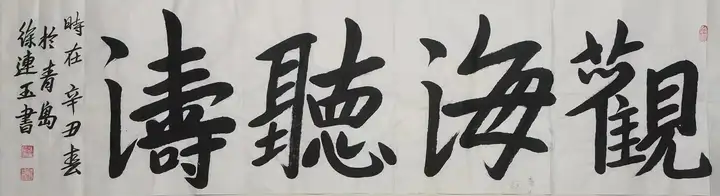 觀海聽濤
時在辛丑春
於青島
徐連玉書